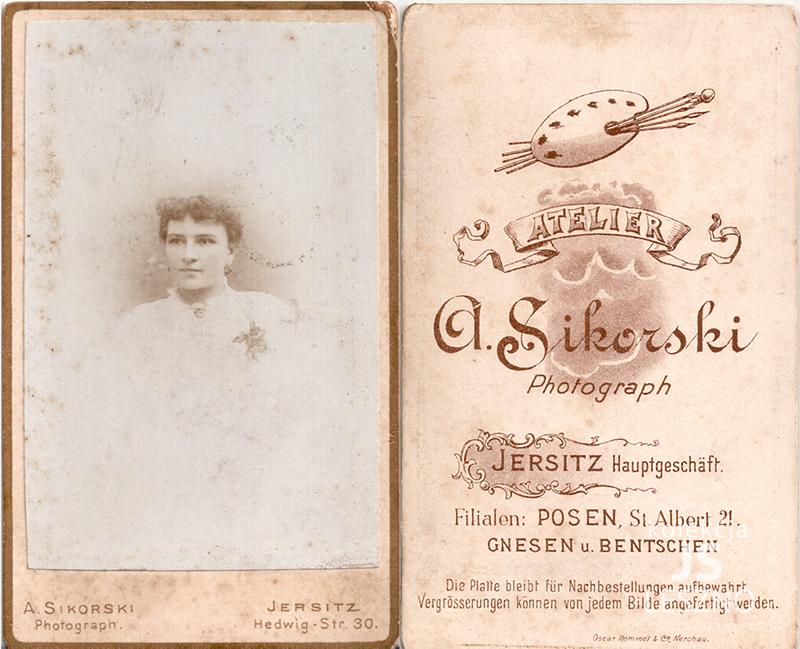 A. SIKORSKI
Photograph.
JERSITZ
Hedwig-Str. 30.
ATELIER
A. Sikorski
Photograph
JERSITZ Hauptgeschäft.
Filialen: POSEN, St. Albert 21.
GNESEN u. BENTSCHEN
Die Platte bleibt für Nachbestellungen aufbewahrt.
Vergrösserungen können von jedem Bilde angefertigt werden.
Oscar Rommel & Co, Nerchau.
JS